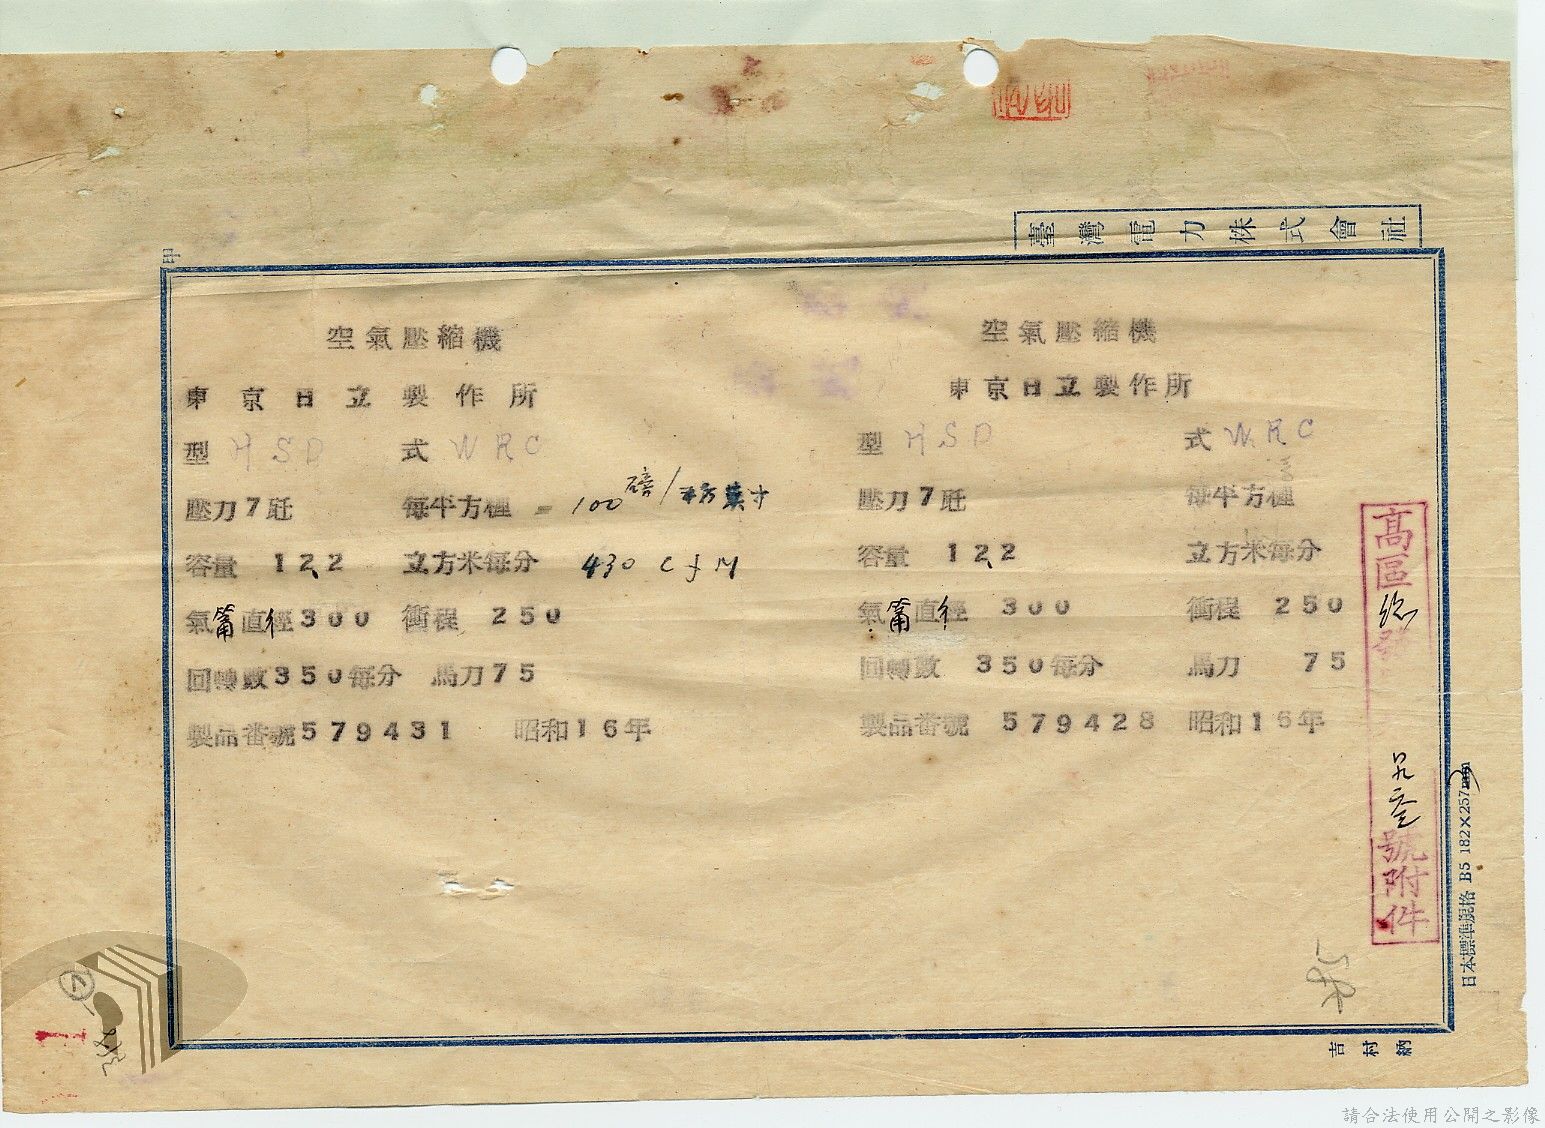 臺灣電力株式會社
印
空氣壓縮機
東京日立製作所
型 HSD 式 WRC
壓力7瓩 每平方糎 = 100磅/平方英寸
容量 12.2 立方米每分 430 CfM
氣筩直徑300 衝程 250
回轉數350每分 馬力75
製品番號579431 昭和16年
空氣壓縮機
東京日立製作所
型 HSD 式 WRC
壓力7瓩 每平方糎
容量 12.2 立方米每分
氣筩直徑 300 衝程 250
回轉數 350每分 馬力 75
製品番號 579428 昭和16年
高區總發
號附件
日本標準規格 B5 182×257mm
吉村納
1
請合法使用公開之影像